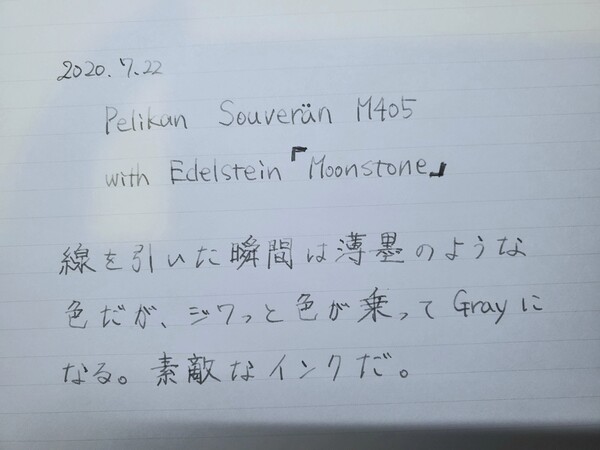 2020.7.22
Pelikan Souverän M405
with Edelstein「Moonstone」
線を引いた瞬間は薄墨のような
色だが、ジワっと色が乗ってGrayに
なる。素敵なインクだ。